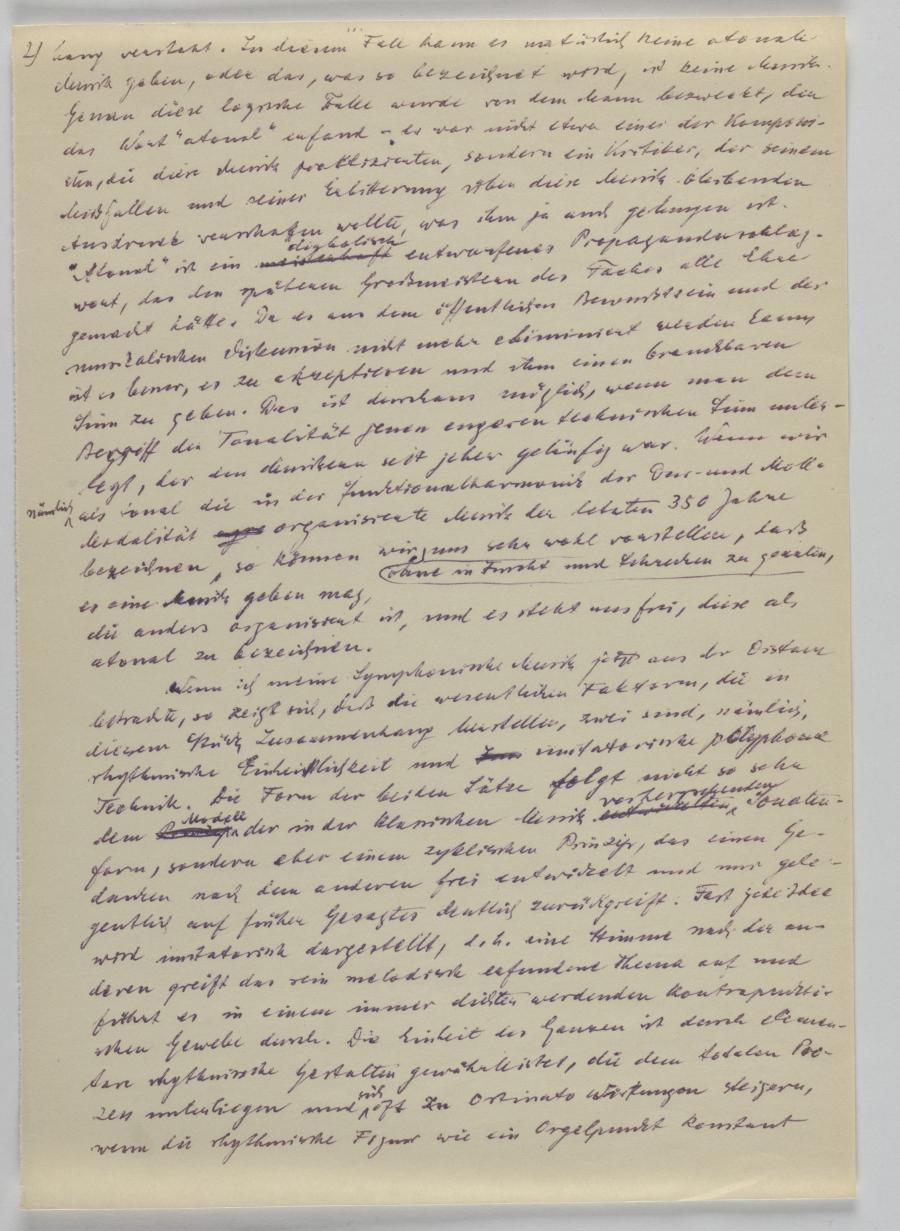 2) hang versteht. In diesem Fall kann es natürlich keine atonale
Musik geben, oder das, was so bezeichnet wird, ist keine Musik.
Genau diese logische Falle wurde von dem Mann bezweckt, der
das Wort "atonal" erfand – es war nicht etwa einer der Komponi-
sten, die diese Musik praktizierten, sondern ein Kritiker, der seinem
Missfallen und seiner Erbitterung über diese Musik bleibenden
Ausdruck verschaffen wollte, was ihm ja auch gelungen ist.
diabolisch
"Atonal" ist ein meisterhaft entworfenes Propagandaschlag-
wort, das den späteren Großmeistern des Faches alle Ehre
gemacht hätte. Da es aus dem öffentlichen Bewusstsein und der
musikalischen Diskussion nicht mehr eliminiert werden kann,
ist es besser, es zu akzeptieren und ihm einen brauchbaren
Sinn zu geben. Das ist durchaus möglich, wenn man dem
Begriff der Tonalität jenen engeren technischen Sinn unter-
legt, der den Musikern seit jeher geläufig war. Wenn wir
nämlich als tonal die in der Funktionalharmonik der Dur- und Moll-
Modalität organisierte Musik der letzten 350 Jahre
bezeichnen, so können wir uns sehr wohl vorstellen, daß
ohne in Furcht und Schrecken zu geraten,
es eine Musik geben mag,
die anders organisiert ist, und es steht uns frei, diese als
atonal zu bezeichnen.
Wenn ich meine Symphonische Musik jetzt aus der Distanz
betrachte, so zeigt sich, daß die wesentlichen Faktoren, die in
diesem Stück Zusammenhang herstellen, zwei sind, nämlich,
rhythmische Einheitlichkeit und imitatorische polyphone
Technik. Die Form der beiden Sätze folgt nicht so sehr
Modell vorherrschenden
dem der in der klassischen Musik entwickelten Sonaten-
form, sondern eher einem zyklischen Prinzip, das einen Ge-
danken nach dem anderen frei entwickelt und nur gele-
gentlich auf früher Gesagtes deutlich zurückgreift. Fast jede Idee
wird imitatorisch dargestellt, d.h. eine Stimme nach der an-
deren greift das rein melodisch erfundene Thema auf und
führt es in einem immer dichter werdenden kontrapunkti-
schen Gewebe durch. Die Einheit des Ganzen ist durch elemen-
tare rhythmische Gestalten gewährleistet, die dem totalen Pro-
zess unterliegen und sich oft zu Ostinato Wirkungen steigern,
wenn die rhythmische Figur wie ein Orgelpunkt konstant